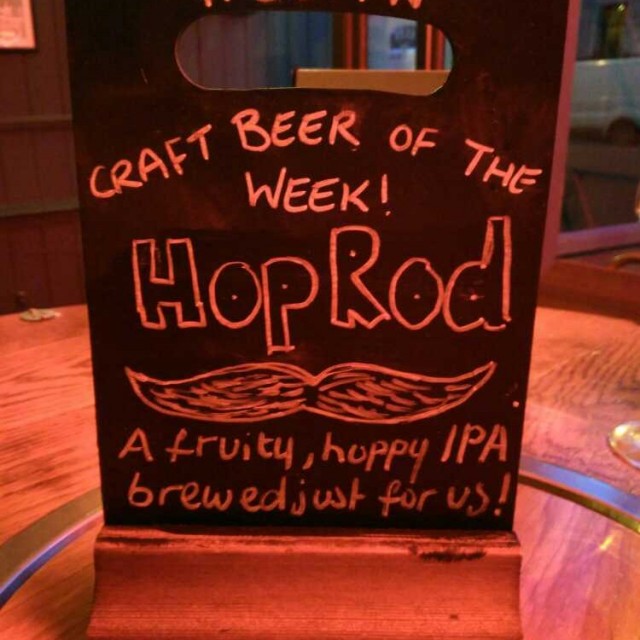 CRAFT BEER OF THE
WEEK!
HopRod
A fruity, hoppy IPA
brewed just for us!